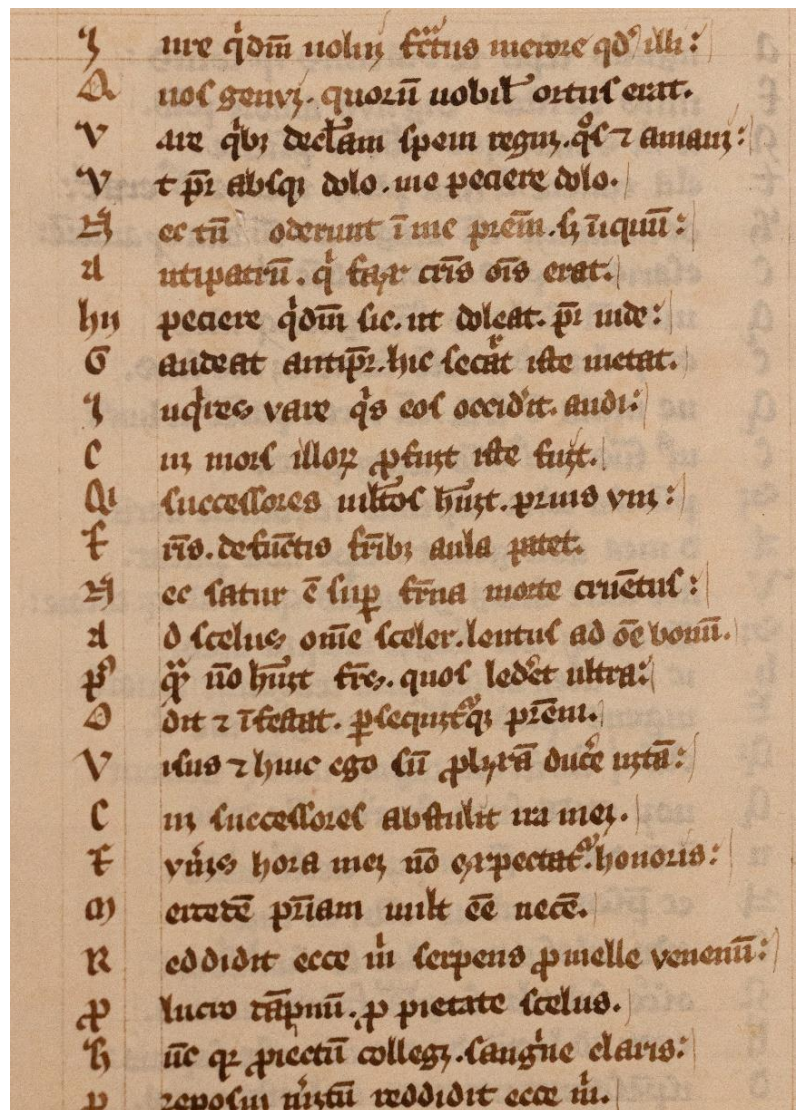 I ure q̇dm̄ noluı fc̄tus memore qd' illi:
Quos genuı. quorū nobil' ortus erat.
Vare q̇bȝ decl'am spem regnı. q̊s ⁊ amauı:
Vt pr̄ absqȝ dolo. me peciere dolo.
Nec tn̄ oderunt ī me prēm. sȝ iniquū:
Antipatrū. q̇ fr̄ cr̄is oīs erat.
hıı peciere q̇dm̄ sic. ut doleat. pr̄ inde:
Gaudeat antipr̄. hic secat iste metat.
Inq̇res vare q̇s eos occidit. audi:
Cuȝ mors illoꝝ ꝓfuıt iste fuıt.
Qı successores ml'tos hn̄t. prius vnı:
Fr̄is. defūctis fr̄ibȝ aula patet.
Nec satur ē suꝑ fr̄na morte cruētus:
Ad scelus om̄e sceler. lentus ad oē bonū.
p' q̄ nō hn̄t fr̄es. quos lederet ultra:
Odit ⁊ īfestat. ꝑsequıtqȝ prēm.
Visus ⁊ huıc ego sū ducere uitā:
Cuȝ successores abstulit ira meȝ.
Fun̄is hora meȝ nō exspectat'. honoris:
Mercedē pr̄iam uult eē necē.
Reddidit ecce m̄ serpens ꝓ melle venenū:
Ꝓ lucro dāpnū. ꝓ pietate scelus.
Hūc qꝛ ꝓiectū collegı. sangu̇ne claris:
p reposuı reddidit ecce m̄.